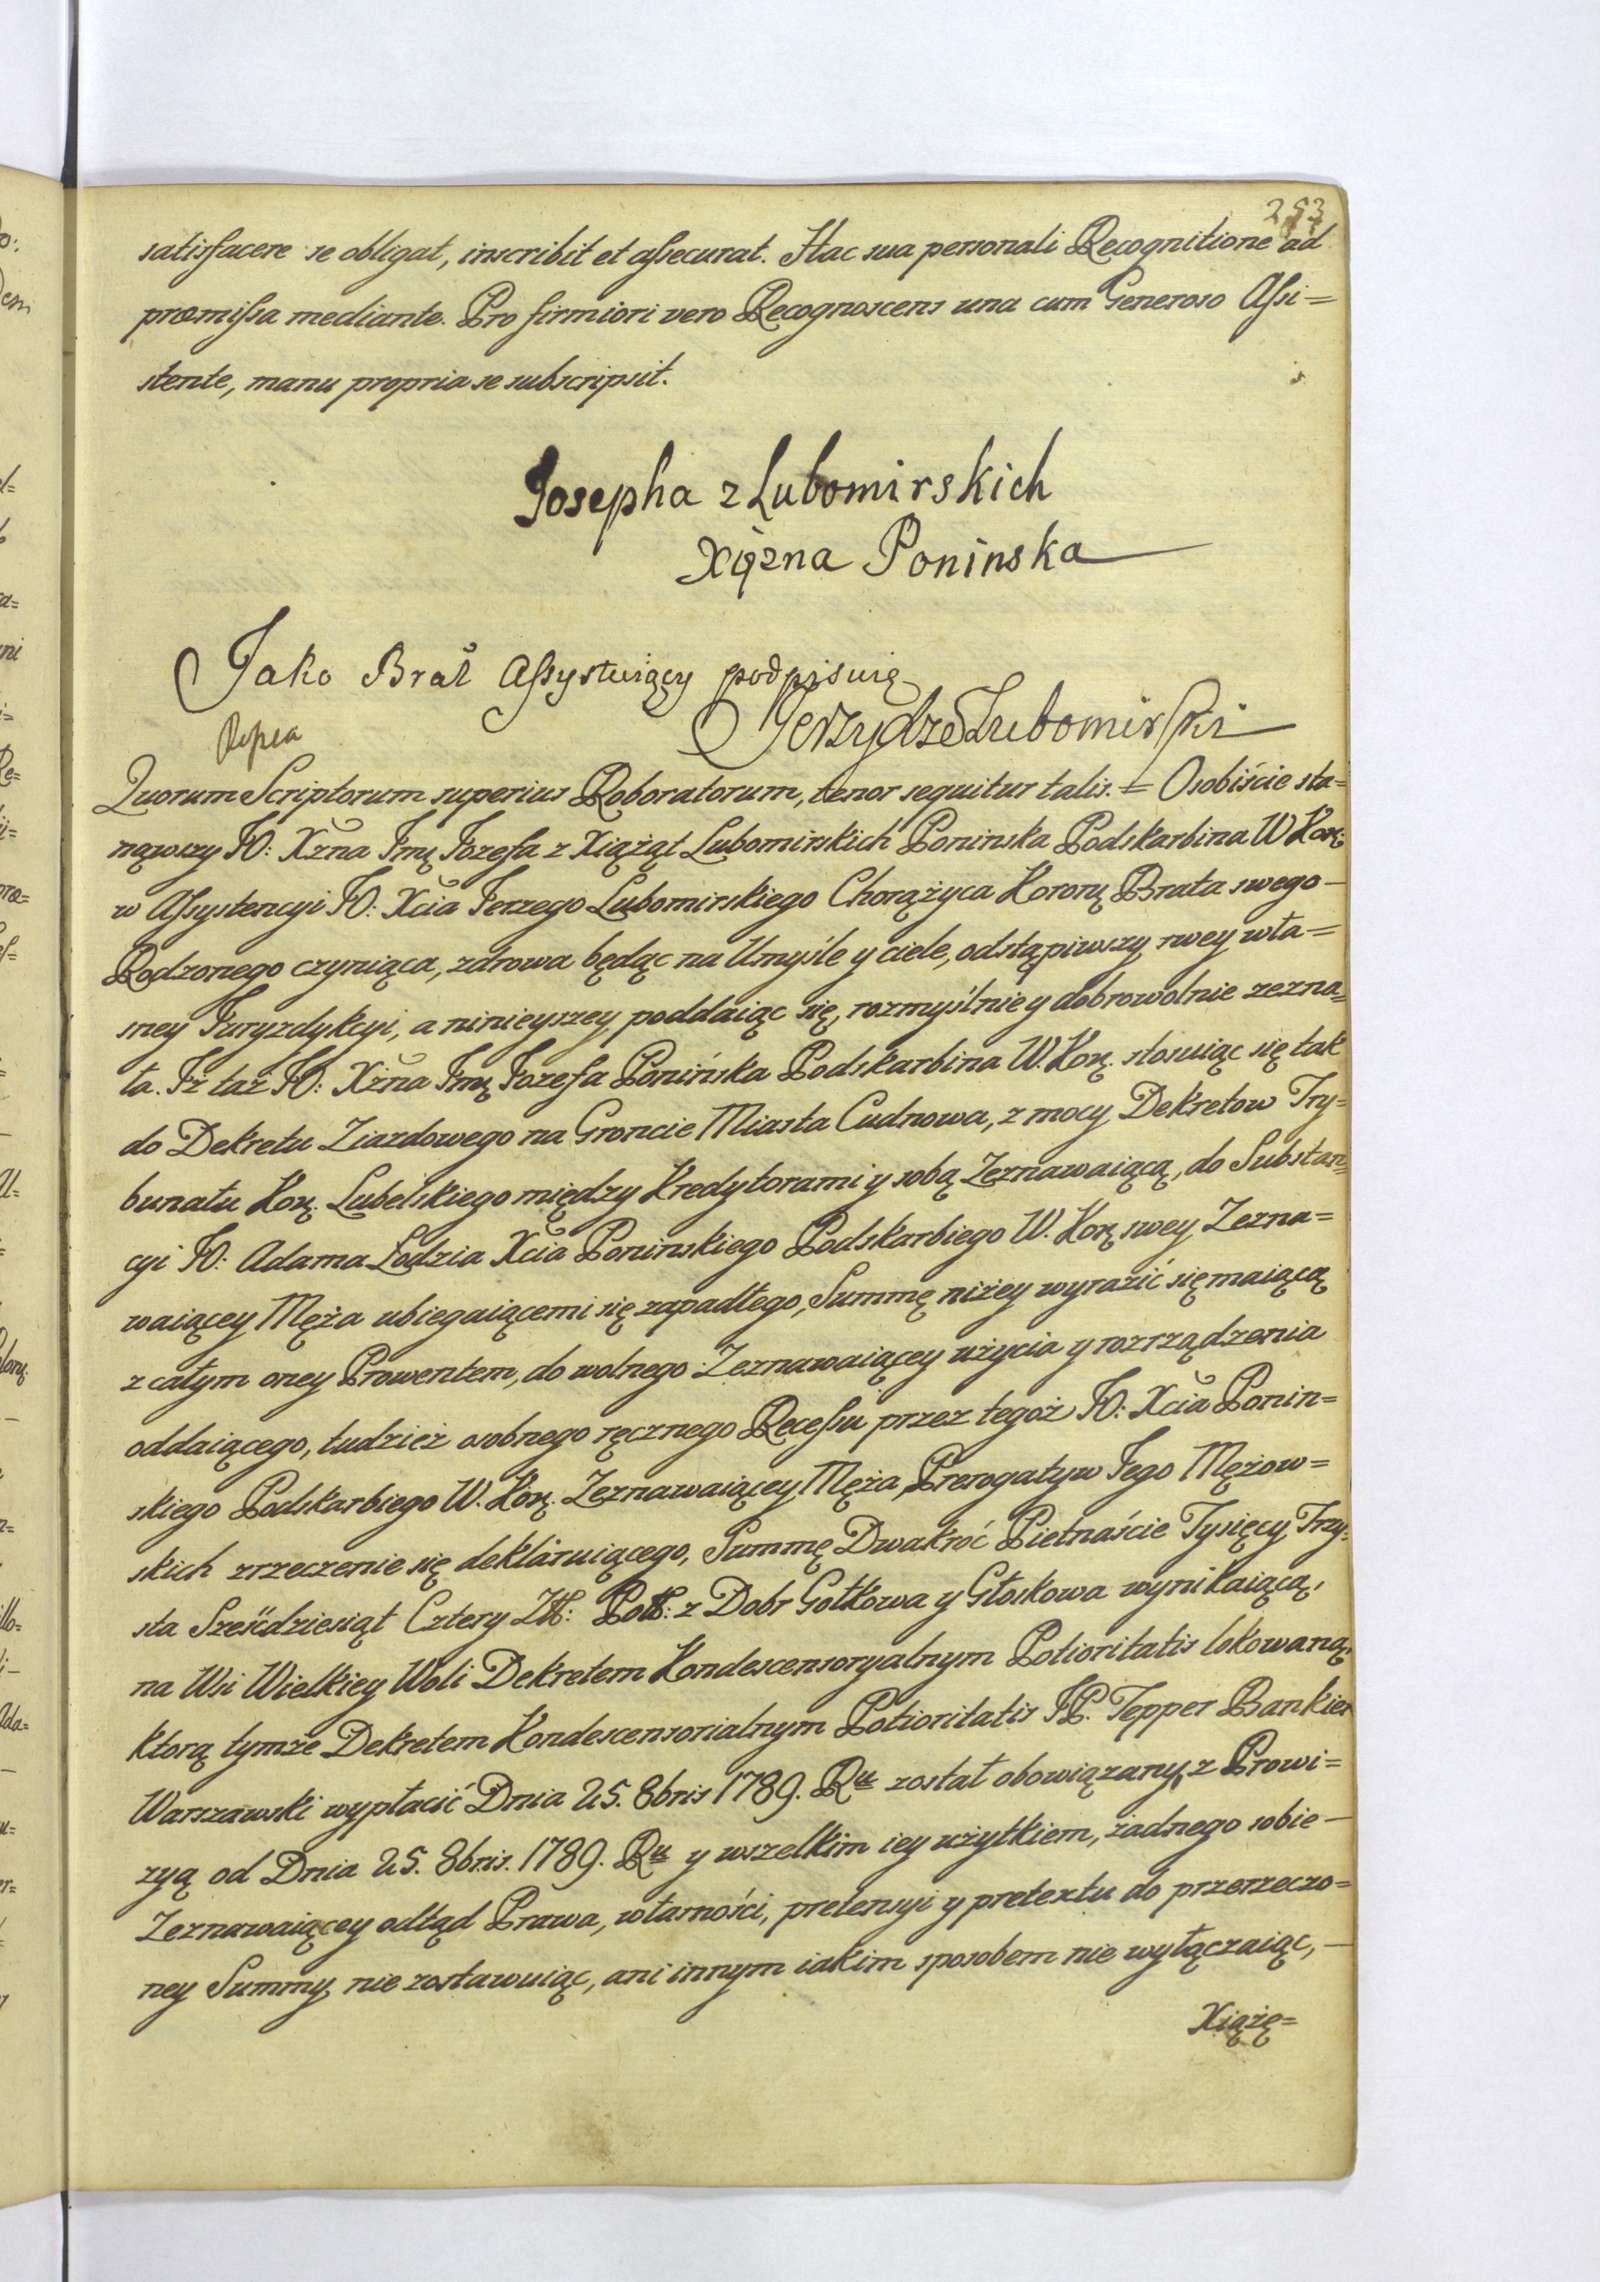 253
satisfacere se obligat, inscribit et assecurat. Hac sua personali Recognitione ad
præmissa mediante. Pro firmiori vero Recognoscens una cum Generoso Assi=
stente, manu propria se subscripsit.
Josepha z Lubomirskich
Xiężna Poninska
Jako Brat Assystuiący podpisuię
Jerzy Lubomirski
Quorum Scriptorum superius Roboratorum, tenor sequitur talis. = Osobiście sta=
nąwszy JO: Xżna Jmę Jozefa z Xiążąt Lubomirskich Poninska Podskarbina W Korę:
w Assystencyi JO: Xcia Jerzego Lubomirskiego Chorążyca Kororę Brata swego –
Rodzonego czyniąca, zdrowa będąc na Umyśle y ciele, odstąpiwszy swey wła=
sney Juryzdykcyi, a ninieyszey poddaiąc się, rozmyślnie y dobrowolnie zezna=
ła. Iż taż JO: Xżna Jmę Jozefa Ponińska Podskarbina W. Korę. stosuiąc się tak
do Dekretu Ziazdowego na Groncie Miasta Cudnowa, z mocy Dekretow Try=
bunału Korę. Lubelskiego między Kredytorami y sobą Zeznawaiącą, do Substan=
cyi JO: Adama Lodzia Xcia Poninskiego Podskarbiego W. Korę swey Zezna=
waiącey Męża ubiegaiącemi się zapadłego, Summę niżey wyrazić się maiącą
z całym oney Prowentem, do wolnego Zeznawaiącey użycia y rozrządzenia
oddaiącego, tudzież osobnego ręcznego Recessu przez tegoż JO: Xcia Ponin=
skiego Podskarbiego W. Korę. Zeznawaiącey Męża, Prerogatyw Jego Mężow=
skich zrzeczenie się deklaruiącego, Summę Dwakroć Pietnaście Tysięcy Trzy=
sta Sześćdziesiąt Cztery Złł: Poll: z Dobr Gołkowa y Głoskowa wynikaiącą,
na Wsi Wielkiey Woli Dekretem Kondescensoryalnym Potioritatis lokowaną,
ktorą tymże Dekretem Kondescensorialnym Potioritatis JP. Tepper Bankier
Warszawski wypłacić Dnia 25. 8bris 1789. Ru został obowiązany, z Prowi=
zyą od Dnia 25. 8bris. 1789. Ru y wszelkim iey użytkiem, żadnego sobie –
Zeznawaiącey odtąd Prawa, własności, pretensyi y pretextu do przerzeczo=
ney Summy nie zostawuiąc, ani innym iakim sposobem nie wyłączaiąc, –
Xiążę=